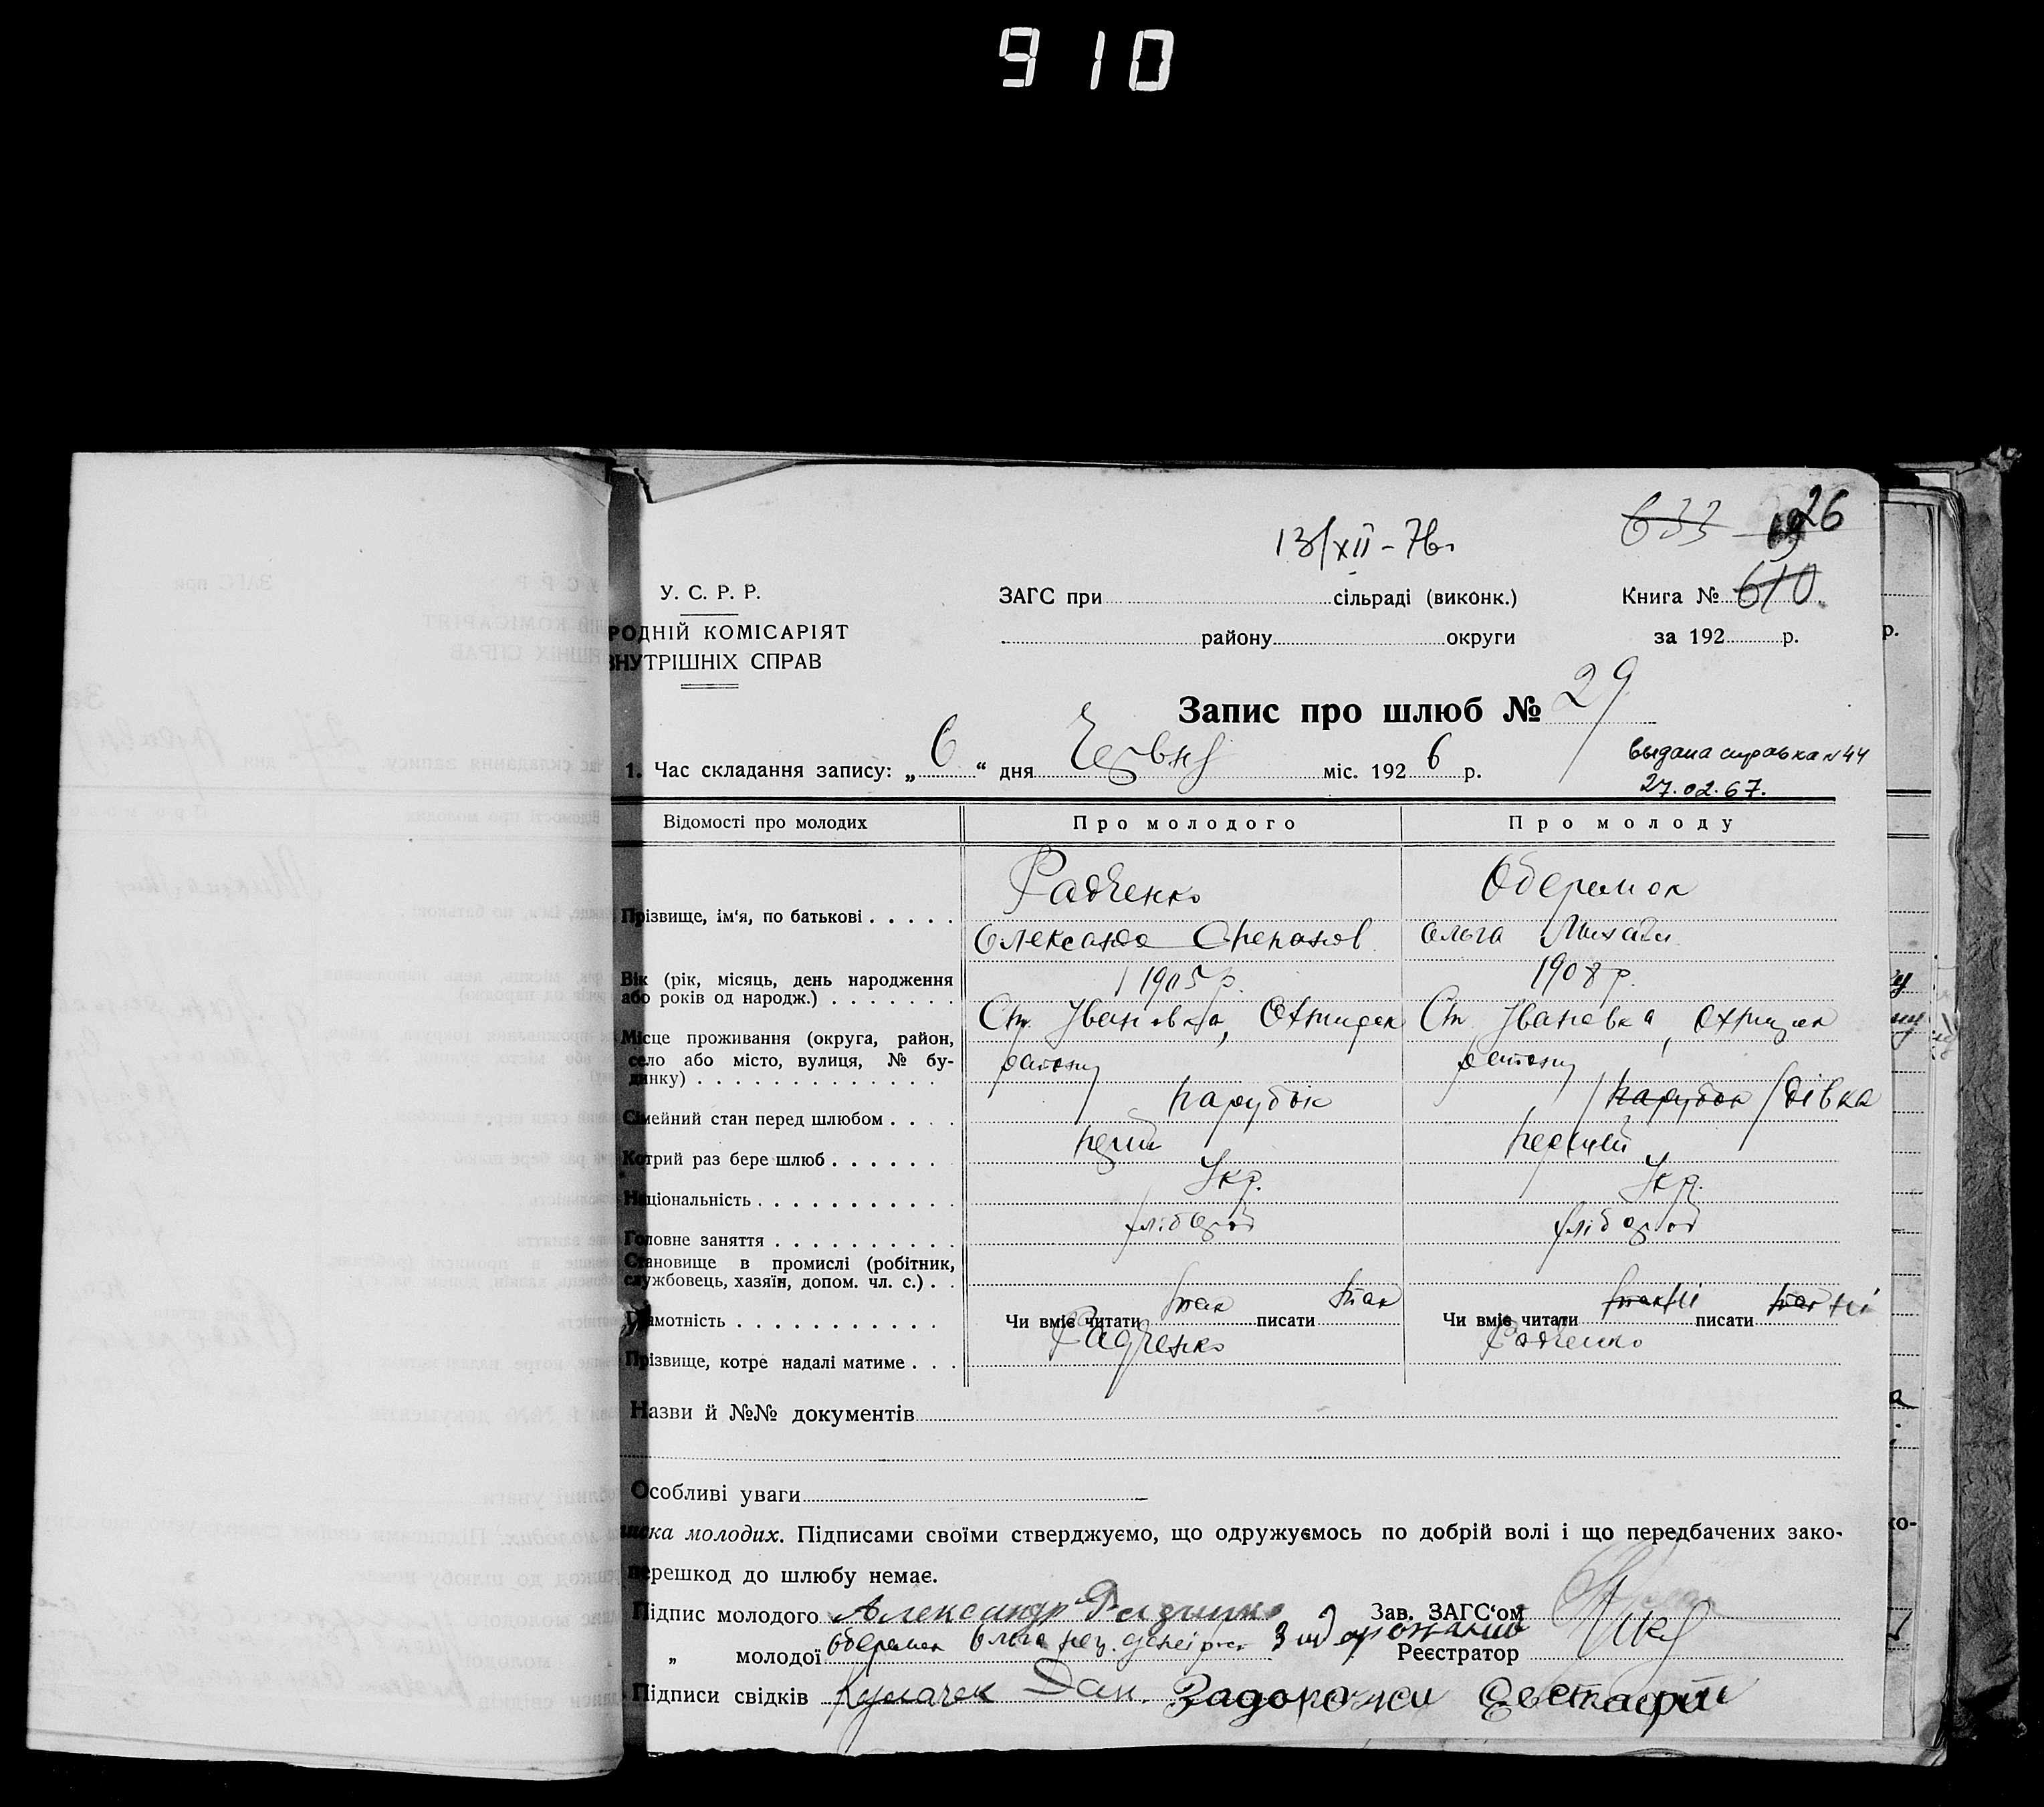 910
26
633
13/XII-76г
У. С. Р. Р.
ЗАГС при сільраді (виконк.)
Книга № 610
РОДНІЙ КОМІСАРІЯТ
району округи
за 192 р.
ВНУТРІШНІХ СПРАВ
Запис про шлюб № 29
1. Час складання запису: „6“ дня Червня міс. 1926 р.
выдана справка №44
27.02.67.
Відомості про молодих
Про молодого
Про молоду
Прізвище, ім'я, по батькові
Радченко
Оберемок
Олександ Степанов
Ольга Михайл
Вік (рік, місяць, день народження або років од народж.)
1905 р.
1908 р.
Місце проживання (округа, район, село або місто, вулиця, № будинку)
Ст. Івановка, Охтирськ
району
Ст. Івановка, Охтирськ
району
Сімейний стан перед шлюбом
парубок
парубок дівка
Котрий раз бере шлюб
перший
Національність
Укр.
Укр.
Головне заняття
хлібороб
хлібороб
Становище в промислі (робітник, службовець, хазяїн, допом. чл. с.)
Грамотність
Чи вміє читати так писати так
Чи вміє читати так ні писати так ні
Прізвище, котре надалі матиме
Радченко
Радченко
Назви й №№ документів
Особливі уваги
писка молодих. Підписами своїми стверджуємо, що одружуємось по добрій волі і що передбачених зако-
перешкод до шлюбу немає.
Підпис молодого Александр Радченко
Зав. ЗАГС'ом
„ молодої Оберемок Ольга
Реєстратор
Підписи свідків Кулачек Дан. Задорожний Євстафій